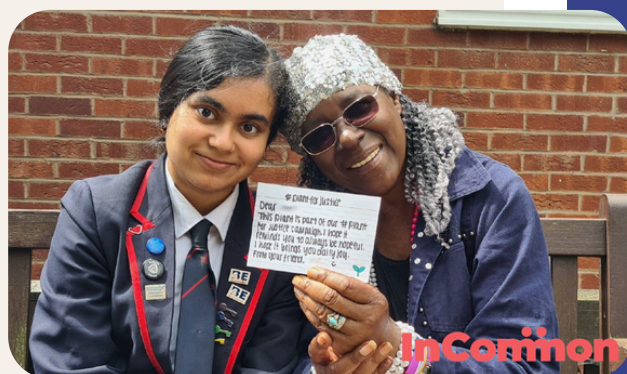 #plant for justice
Dear
"This plant is part of our #Plant
for Justice campaign. I hope it
reminds you to always be hopeful.
I hope it brings you daily joy.
From your friend,
BE
BE
InCommon